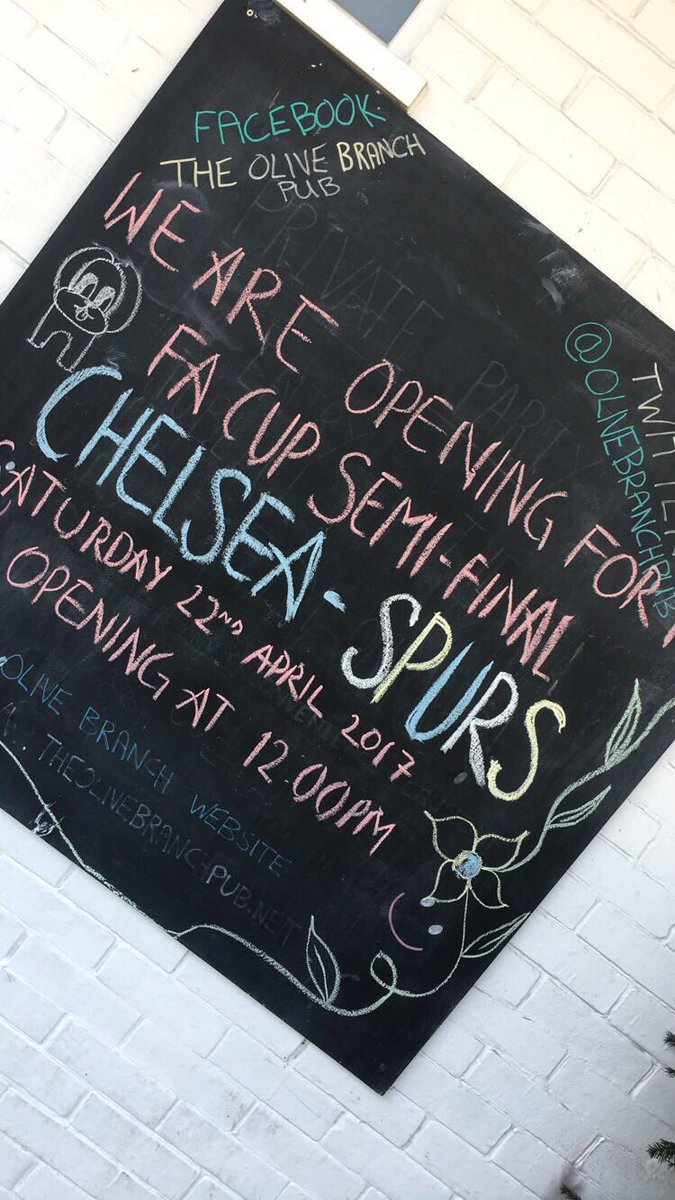 FACEBOOK
THE OLIVE BRANCH
PUB
TWITTER
@OLIVEBRANCHPUB
PRIVATE PARTY
WE ARE OPENING FOR
FA CUP SEMI-FINAL
CHELSEA - SPURS
SATURDAY 22ND APRIL 2017
OPENING AT 12.00PM
OLIVE BRANCH WEBSITE
THEOLIVEBRANCHPUB.NET